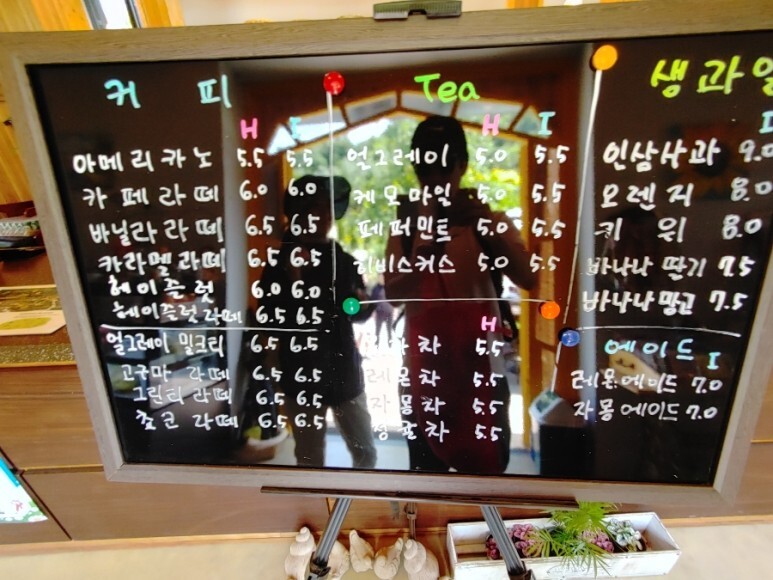 커 피
H I
아메리카노 5.5 5.5
카페라떼 6.0 6.0
바닐라라떼 6.5 6.5
카라멜라떼 6.5 6.5
헤이즐럿 6.0 6.0
헤이즐럿라떼 6.5 6.5
얼그레이 밀크티 6.5 6.5
고구마 라떼 6.5 6.5
그린티 라떼 6.5 6.5
초코 라떼 6.5 6.5
Tea
H I
얼그레이 5.0 5.5
케모마일 5.0 5.5
페퍼민트 5.0 5.5
히비스커스 5.0 5.5
H
차 5.5
레몬차 5.5
자몽차 5.5
차 5.5
생과일
I
인삼사과 9.0
오렌지 8.0
키 위 8.0
바나나 딸기 7.5
바나나망고 7.5
에이드 I
레몬에이드 7.0
자몽에이드 7.0